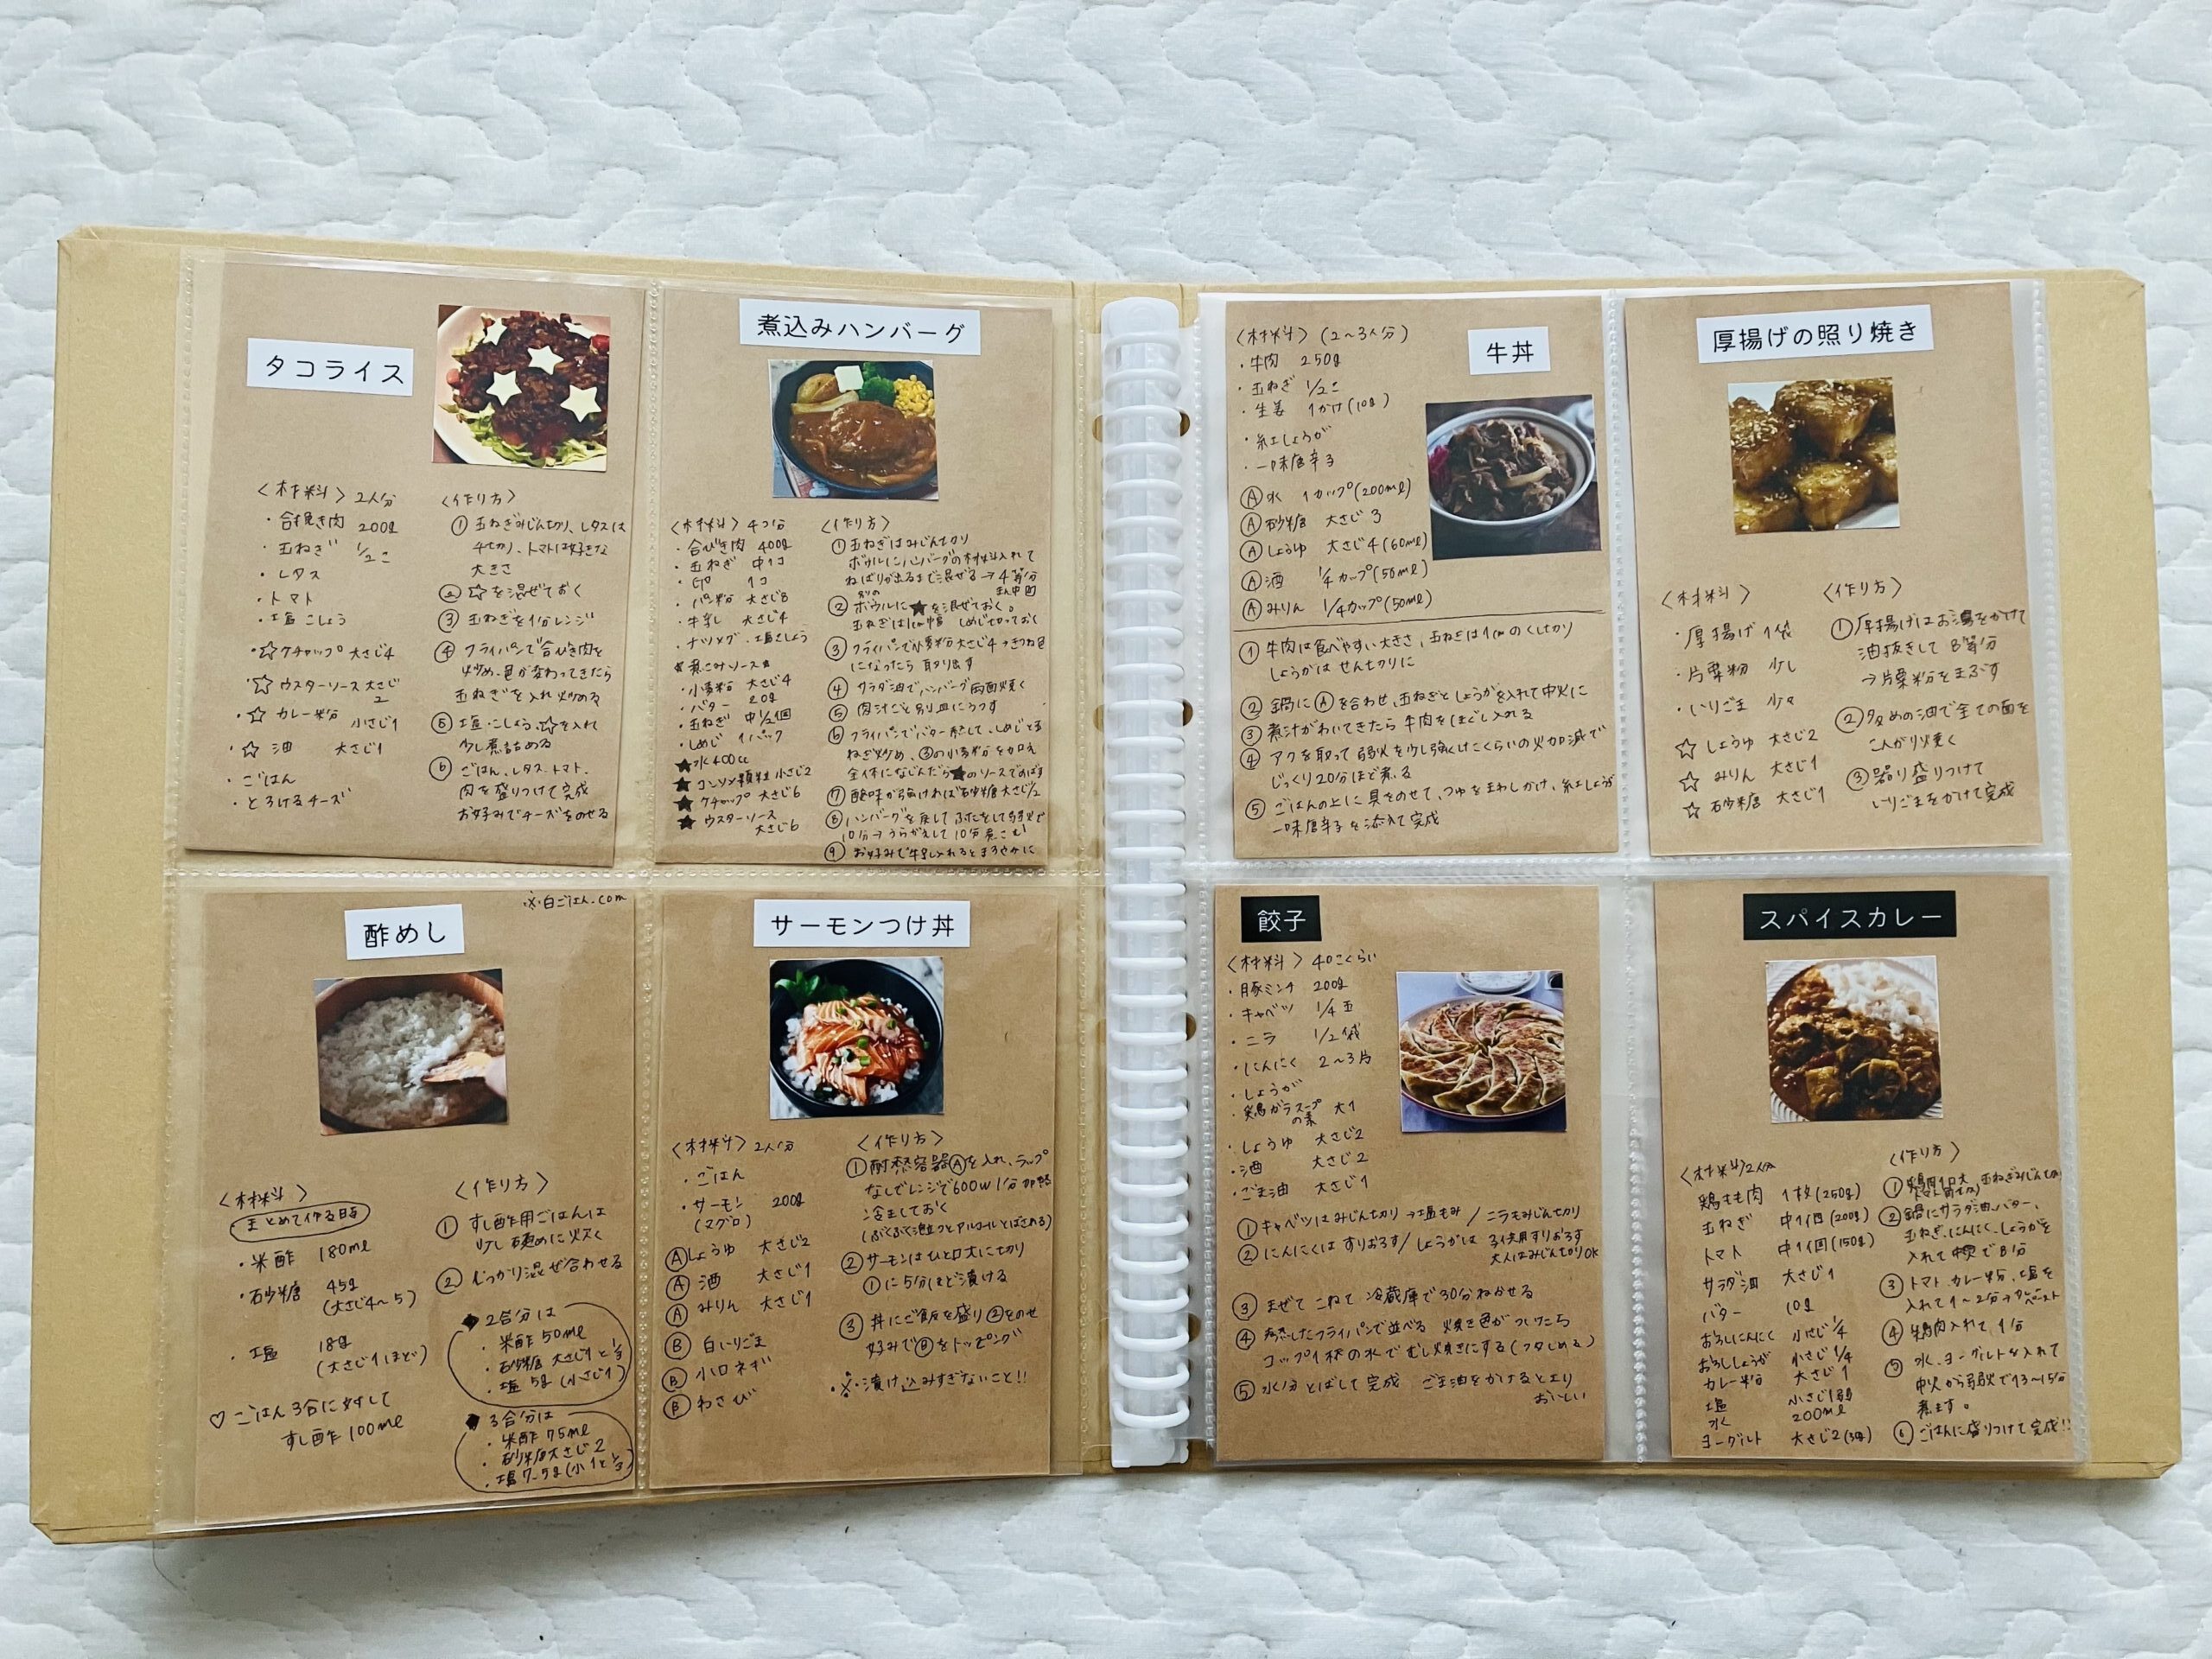 タコライス
〈材料〉2人分
・合挽き肉 200g
・玉ねぎ 1/2こ
・レタス
・トマト
・塩こしょう
・☆ケチャップ 大さじ4
・☆ウスターソース 大さじ2
・☆カレー粉 小さじ1
・☆油 大さじ1
・ごはん
・とろけるチーズ
〈作り方〉
①玉ねぎみじん切り、レタスは
千切り、トマトは好きな
大きさ
②☆を混ぜておく
③玉ねぎを1分レンジ
④フライパンで合びき肉を
炒め、色が変わってきたら
玉ねぎを入れ炒める
⑤塩・こしょう、☆を入れ
少し煮詰める
⑥ごはん、レタス、トマト、
肉を盛りつけて完成
お好みでチーズをのせる
煮込みハンバーグ
〈材料〉4つ分
・合びき肉 400g
・玉ねぎ 中1コ
・卵 1コ
・パン粉 大さじ8
・牛乳 大さじ4
・ナツメグ・塩こしょう
★煮こみソース★
・小麦粉 大さじ4
・バター 20g
・玉ねぎ 中1/2個
・しめじ 1パック
★水400cc
★コンソメ顆粒 小さじ2
★ケチャップ 大さじ6
★ウスターソース
大さじ6
〈作り方〉
①玉ねぎはみじん切り
ボウルにハンバーグの材料入れて
ねばりが出るまで混ぜる→4等分
②別のボウルに★を混ぜておく。
玉ねぎは1cm幅 しめじ切っておく
③フライパンで小麦粉大さじ4→きつね色
になったら 取り出す
④サラダ油でハンバーグ両面焼く
⑤肉汁ごと別皿にうつす
⑥フライパンでバター熱して、しめじと玉
ねぎ炒め、③の小麦粉を加え
全体になじんだら★のソースでのばす
⑦酸味が強ければ砂糖大さじ1/2
⑧ハンバーグを戻して ふたをして弱火で
10分→うらがえして10分煮こむ
⑨お好みで牛乳入れるとまろやかに
※白ごはん.com
酢めし
〈材料〉
まとめて作る日毎
・米酢 180ml
・砂糖 45g
(大さじ4〜5)
・塩 18g
(大さじ1ほど)
♡ごはん3合に対して
すし酢100ml
〈作り方〉
①すし酢用ごはんは
少し硬めに炊く
②しっかり混ぜ合わせる
◆2合分は
・米酢50ml
・砂糖 大さじ1と1/3
・塩5g(小さじ1)
◆3合分は
・米酢75ml
・砂糖大さじ2
・塩7.5g(小1と1/3)
サーモンつけ丼
〈材料〉2人分
・ごはん
・サーモン 200g
(マグロ)
Ⓐしょうゆ 大さじ2
Ⓐ酒 大さじ1
Ⓐみりん 大さじ1
Ⓑ白いりごま
Ⓑ小口ネギ
Ⓑわさび
〈作り方〉
①耐熱容器Ⓐを入れ、ラップ
なしでレンジで600W1分加熱
冷ましておく
(ぶくぶく泡立つとアルコールとばされる)
②サーモンはひと口大に切り
①に5分ほど漬ける
③丼にご飯を盛り②をのせ
好みでⒷをトッピング
※漬け込みすぎないこと!!
牛丼
〈材料〉(2〜3人分)
・牛肉 250g
・玉ねぎ 1/2こ
・生姜 1かけ(10g)
・紅しょうが
・一味唐辛子
Ⓐ水 1カップ(200ml)
Ⓐ砂糖 大さじ3
Ⓐしょうゆ 大さじ4(60ml)
Ⓐ酒 1/4カップ(50ml)
Ⓐみりん 1/4カップ(50ml)
①牛肉は食べやすい大きさ、玉ねぎは1cmのくし切り
しょうがはせん切りに
②鍋にⒶを合わせ、玉ねぎとしょうがを入れて中火に
③煮汁がわいてきたら 牛肉をほぐし入れる
④アクを取って 弱火を少し強くしたくらいの火加減で
じっくり20分ほど煮る
⑤ごはんの上に具をのせて、つゆをまわしかけ、紅しょうが
一味唐辛子を添えて完成
厚揚げの照り焼き
〈材料〉
・厚揚げ 1袋
・片栗粉 少し
・いりごま 少々
☆しょうゆ 大さじ2
☆みりん 大さじ1
☆砂糖 大さじ1
〈作り方〉
①厚揚げはお湯をかけて
油抜きして 8等分
→片栗粉をまぶす
②多めの油で全ての面を
こんがり焼く
③器に盛りつけて
いりごまをかけて完成
餃子
〈材料〉40こくらい
・豚ミンチ 200g
・キャベツ 1/4玉
・ニラ 1/2袋
・にんにく 2〜3片
・しょうが
・鶏がらスープの素 大1
・しょうゆ 大さじ2
・酒 大さじ2
・ごま油 大さじ1
①キャベツはみじん切り→塩もみ/ニラもみじん切り
②にんにくは すりおろす/しょうがは 子供用すりおろす
大人はみじん切りOK
③まぜて こねて 冷蔵庫で30分ねかせる
④熱したフライパンで並べる 焼き色がついたら
コップ1杯の水でむし焼きにする(フタしめる)
⑤水分とばして完成 ごま油をかけるとより
おいしい
スパイスカレー
〈材料〉2人分
鶏もも肉 1枚(250g)
玉ねぎ 中1個(200g)
トマト 中1個(150g)
サラダ油 大さじ1
バター 10g
おろしにんにく 小さじ1/4
おろししょうが 小さじ1/4
カレー粉 大さじ1
塩 小さじ1弱
水 200ml
ヨーグルト 大さじ2
〈作り方〉
①鶏肉1口大 玉ねぎみじん切り
②鍋にサラダ油、バター、
玉ねぎ、にんにく、しょうがを
入れて中火で8分
③トマト、カレー粉、塩を
入れて1〜2分→ペースト
④鶏肉入れて 1分
⑤水、ヨーグルトを入れて
中火から弱火で13〜15分
煮ます。
⑥ごはんに盛りつけて完成!!